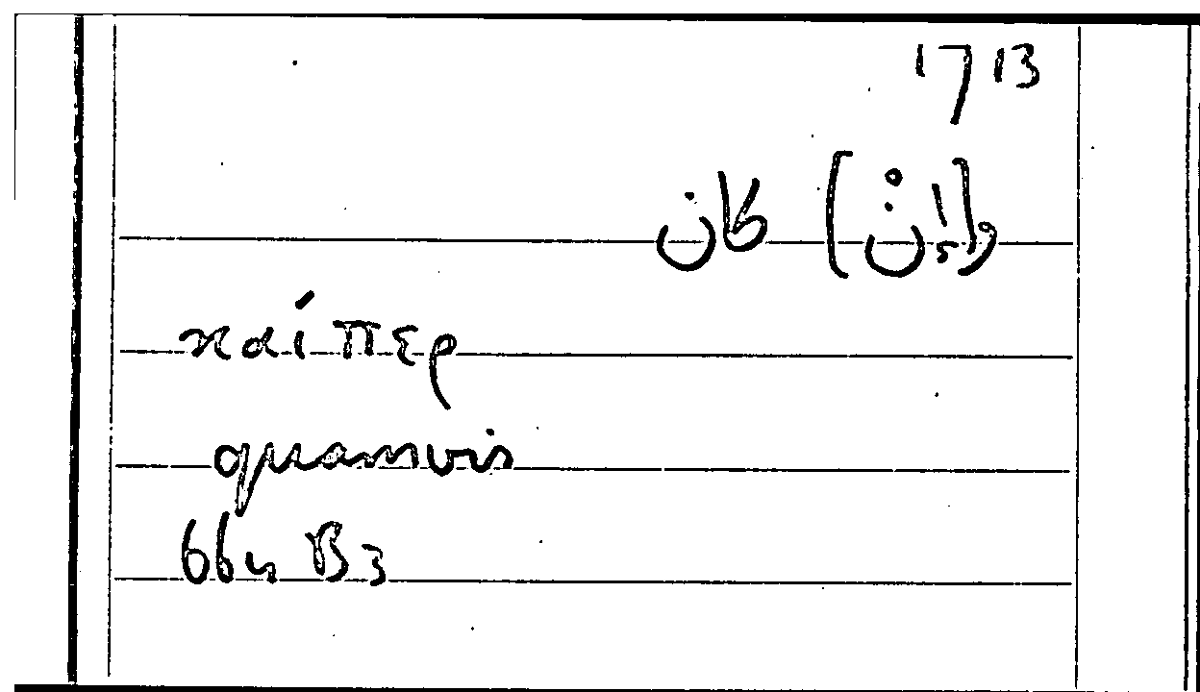 1713
(وإنْ) كان
καίπερ
quamvis
66u B3